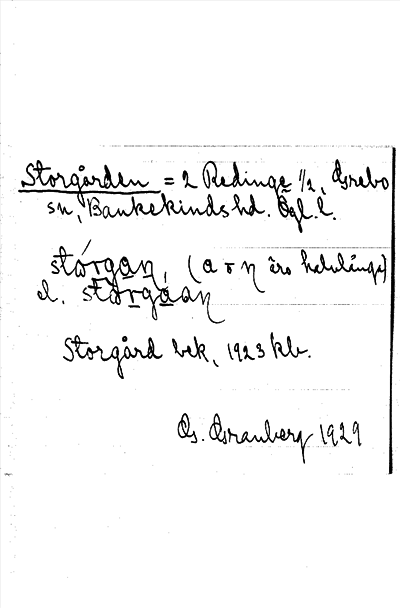 Storgården = 2 Redinge 1/2, Grebo
sn, Bankekinds hd. Ögl. l.
stórgan, (a o η äro halvlånga)
el. storgaan
Storgård bek, 1923 kb.
G. Granberg 1929